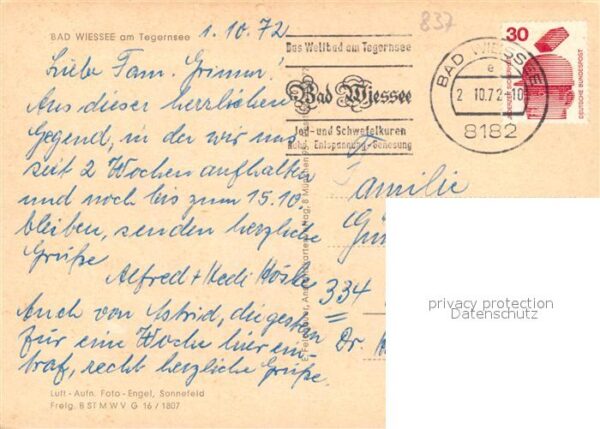 BAD WIESSEE am Tegernsee
1.10.72
Liebe Fam. Grimm!
Aus dieser herrlichen
Gegend, in der wir uns
seit 2 Wochen aufhalten
und noch bis zum 15.10.
bleiben, senden herzliche
Grüße
Alfred + Hedi
Auch von Astrid, die gestern
für eine Woche hier ein-
traf, recht herzliche Grüße.
Luft-Aufn. Foto-Engel, Sonnefeld
Freig. B ST M W V G 16/1807
837
Das Weltbad am Tegernsee
Bad Wiessee
Jod- und Schwefelkuren
Ruhe, Entspannung, Genesung
BAD WIESSEE
e
2.10.72-10
8182
30
JEDERZEIT SICHERHEIT
DEUTSCHE BUNDESPOST
Familie
Gün
334
Dr.
privacy protection
Datenschutz